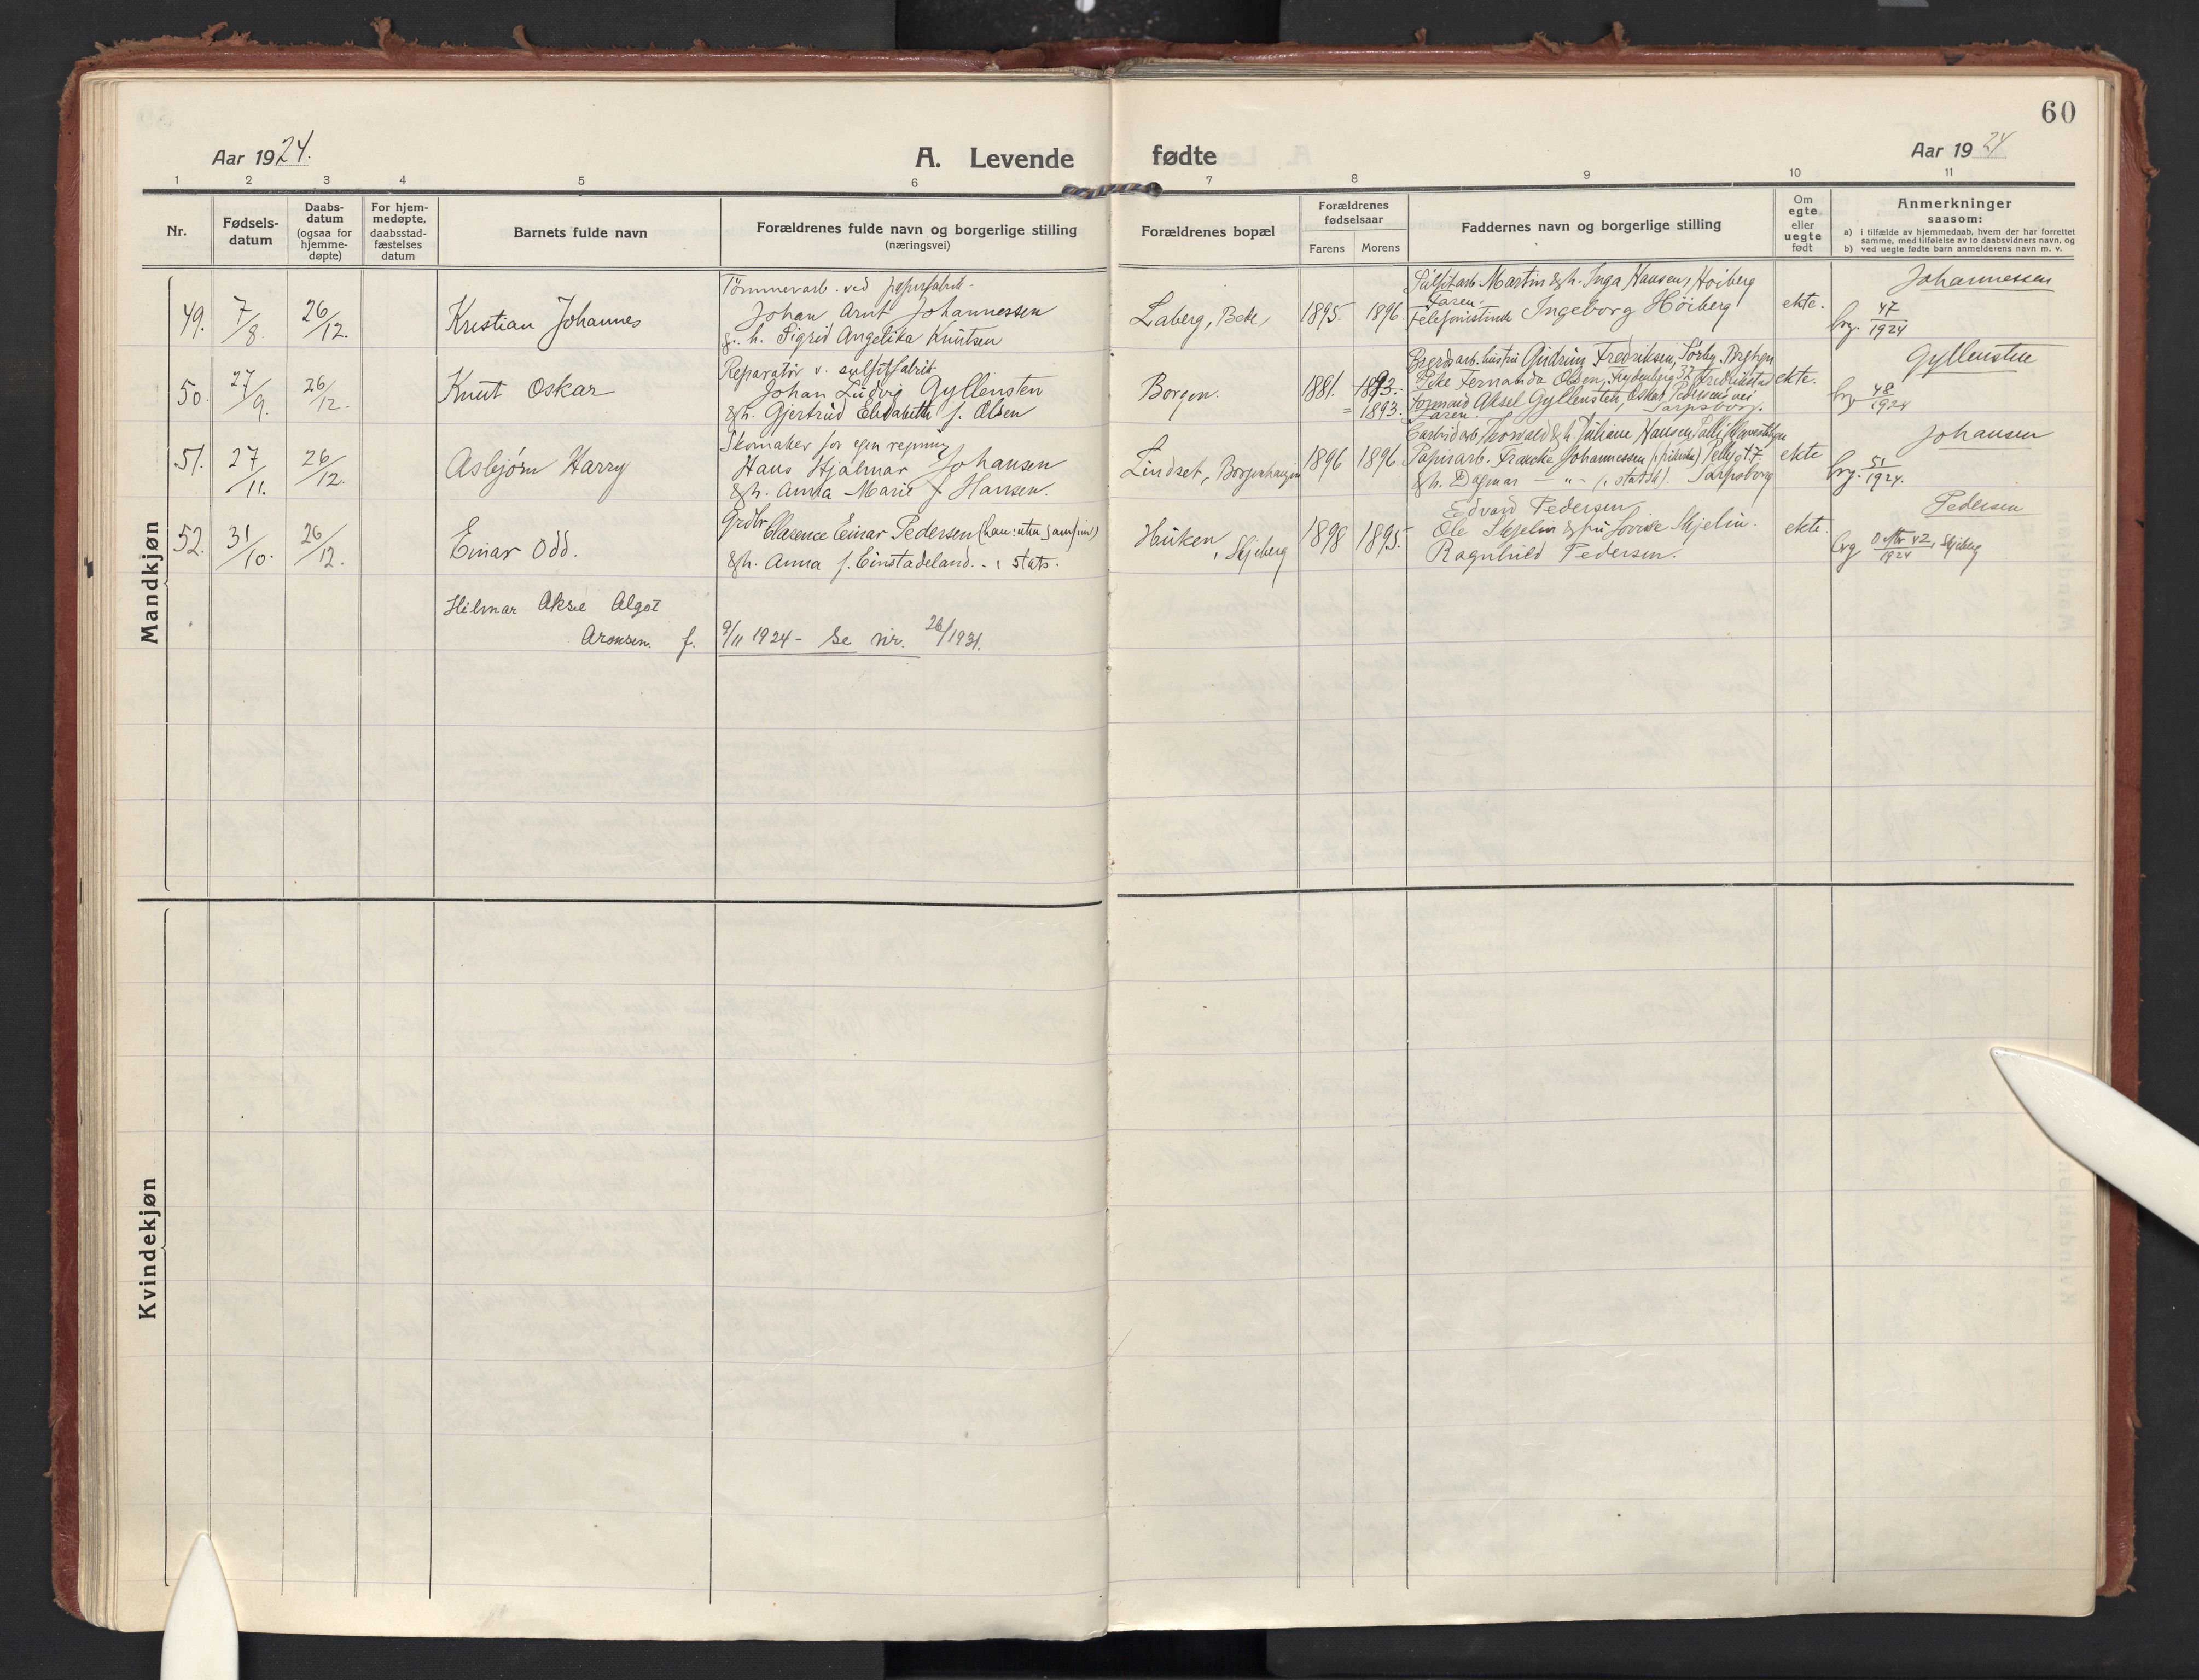 60
Aar 1924.
A. Levende fødte
Aar 1924
1 2 3 4 5 6 7 8 9 10 11
Nr.
Fødsels-
datum
Daabs-
datum
(ogsaa for
hjemme-
døpte)
For hjem-
medøpte,
daabsstad-
fæstelses
datum
Barnets fulde navn
Forældrenes fulde navn og borgerlige stilling
(næringsvei)
Forældrenes bopæl
Forældrenes
fødselsaar
Farens Morens
Faddernes navn og borgerlige stilling
Om
egte
eller
uegte
født
Anmerkninger
saasom:
a) i tilfælde av hjemmedaab, hvem der har forrettet
samme, med tilføielse av to daabsvidners navn, og
b) ved uegte fødte barn anmelderens navn m. v.
Mandkjøn
49. 7/8. 26/12. Kristian Johannes
Tømmerarb. ved papirfabrik-
Johan Arnt Johannessen
g. h. Sigrid Angelika Knutsen
Laberg, 1895. 1896.
Sulfitarb. Martin & h. Inga Hansen, Høiberg
Faren.
Telefonistinde Ingeborg Høiberg
ekte.
Johannessen
brg. 47/1924
50. 27/9. 26/12. Knut Oskar
Reparatør v. sulfitfabrik
Johan Ludvig Gyllensten
& h. Gjertrud Elisabeth f. Olsen
Borgen. 1881. 1893.
= 1893.
hustru Gudrun Fredriksen, Sørby, Borgen
Pike Fernanda Olsen, Frydenberg 37 Fredrikstad
Formand Aksel Gyllensten, Oskar Pedersens vei
Faren. Sarpsborg.
ekte.
Gyllensten
brg 48/1924
51. 27/11. 26/12. Asbjørn Harry
Skomaker for egen regning
Hans Hjalmar Johansen
& h. Anna Marie f. Hansen.
Lindset, Borgenhaugen 1896 1896.
Carbidarb. Thorvald & h. Juliane Hansen,
Papirarb. Francke Johannessen
& h. Dagmar - " - (i statsk). Sarpsborg
ekte
Johansen
brg. 51/1924.
52. 31/10. 26/12. Einar Odd.
Grdbr. Clarence Einar Pedersen
& h. Anna f. Einstadeland. - i stats.
Huken, Skjeberg 1898 1895.
Edvard Pedersen
Ole Skjelin & fru Lovise Skjelin.
Ragnhild Pedersen.
ekte.
Pedersen
brg 42/1924, Skjeberg
Hilmar Aksel Algot
Aronsen. f. 9/11 1924 - Se nr. 26/1931.
Kvindekjøn